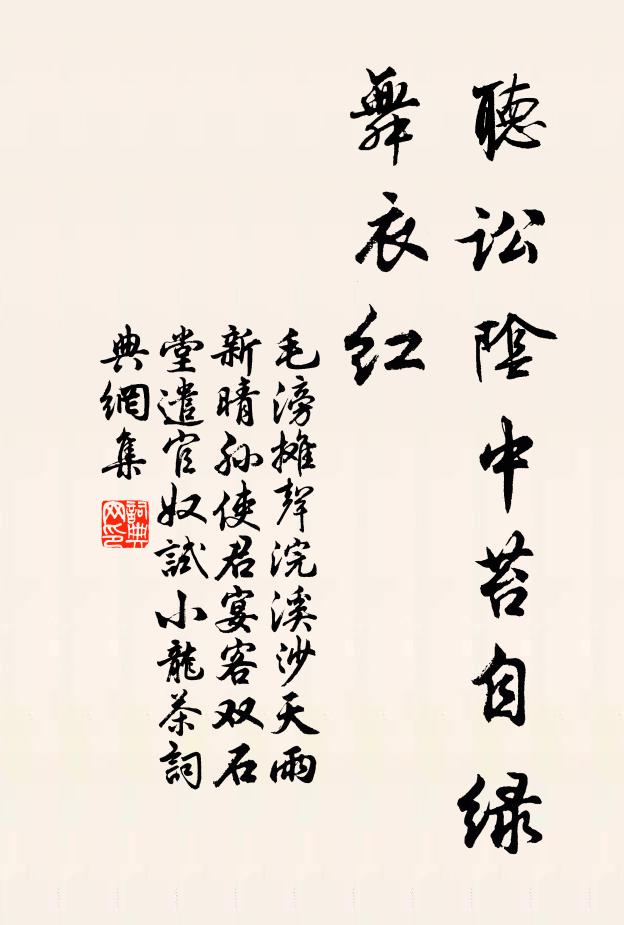 聽訟陰中苔自緑
舞衣紅
毛滂攤聲浣溪沙天雨
新晴孙使君宴客双石
堂遣官奴試小龍茶詞
典網集
詞典
网印